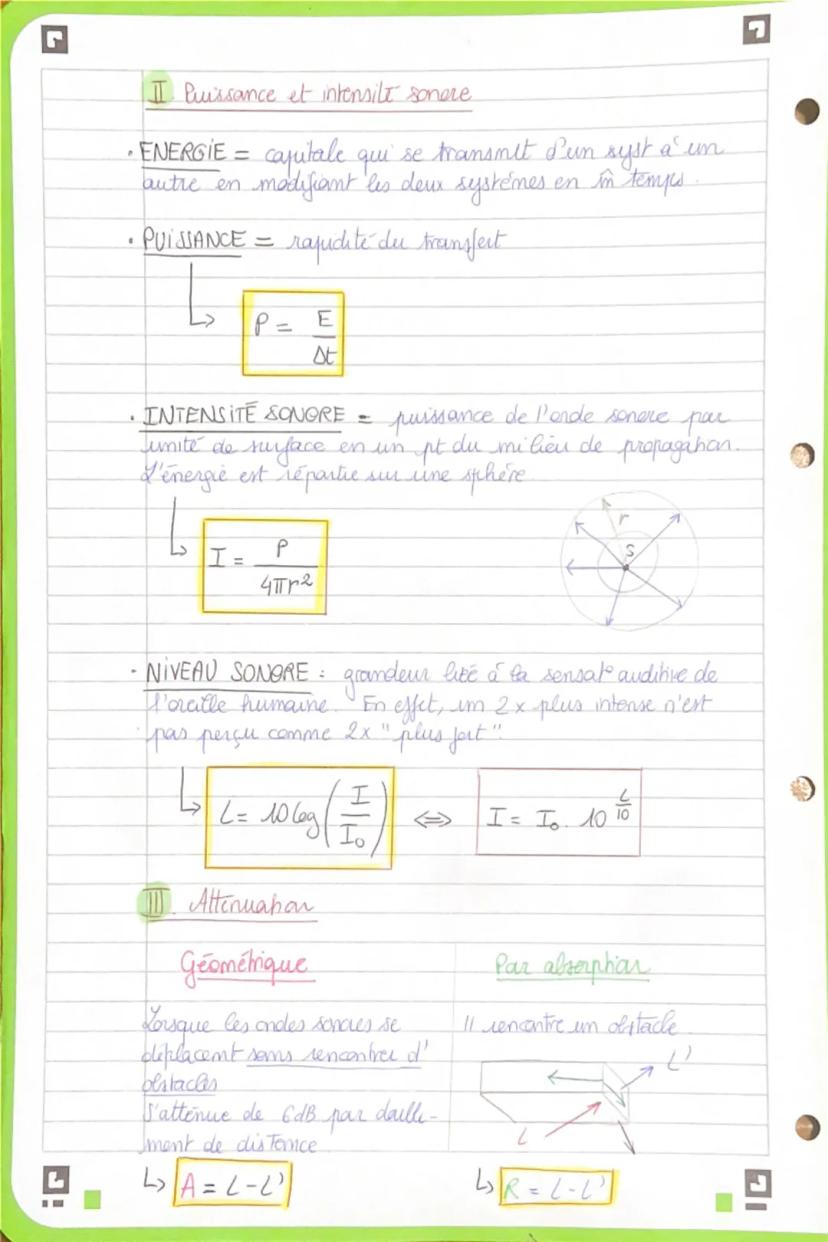 II. Puissance et intensité sonore
• ENERGIE = capitale qui se transmet d'un syst à un
autre en modifiant les deux systèmes en m̂ temps.
• PUISSANCE = rapidité du transfert
P = E / Δt
• INTENSITÉ SONORE = puissance de l'onde sonore par
unité de surface en un pt du milieu de propagation.
L'énergie est répartie sur une sphère
I = P / 4πr²
r
S
• NIVEAU SONORE : grandeur liée à la sensat° auditive de
l'oreille humaine. En effet, un 2x plus intense n'est
pas perçu comme 2x "plus fort".
L = 10 log (I / I₀) ⇔ I = I₀ . 10^(L/10)
III. Atténuation
Géométrique
Lorsque les ondes sonores se
déplacent sans rencontrer d'
obstacles
S'atténue de 6dB par double-
ment de distance
A = L - L'
Par absorption
Il rencontre un obstacle
L'
L
R = L - L'